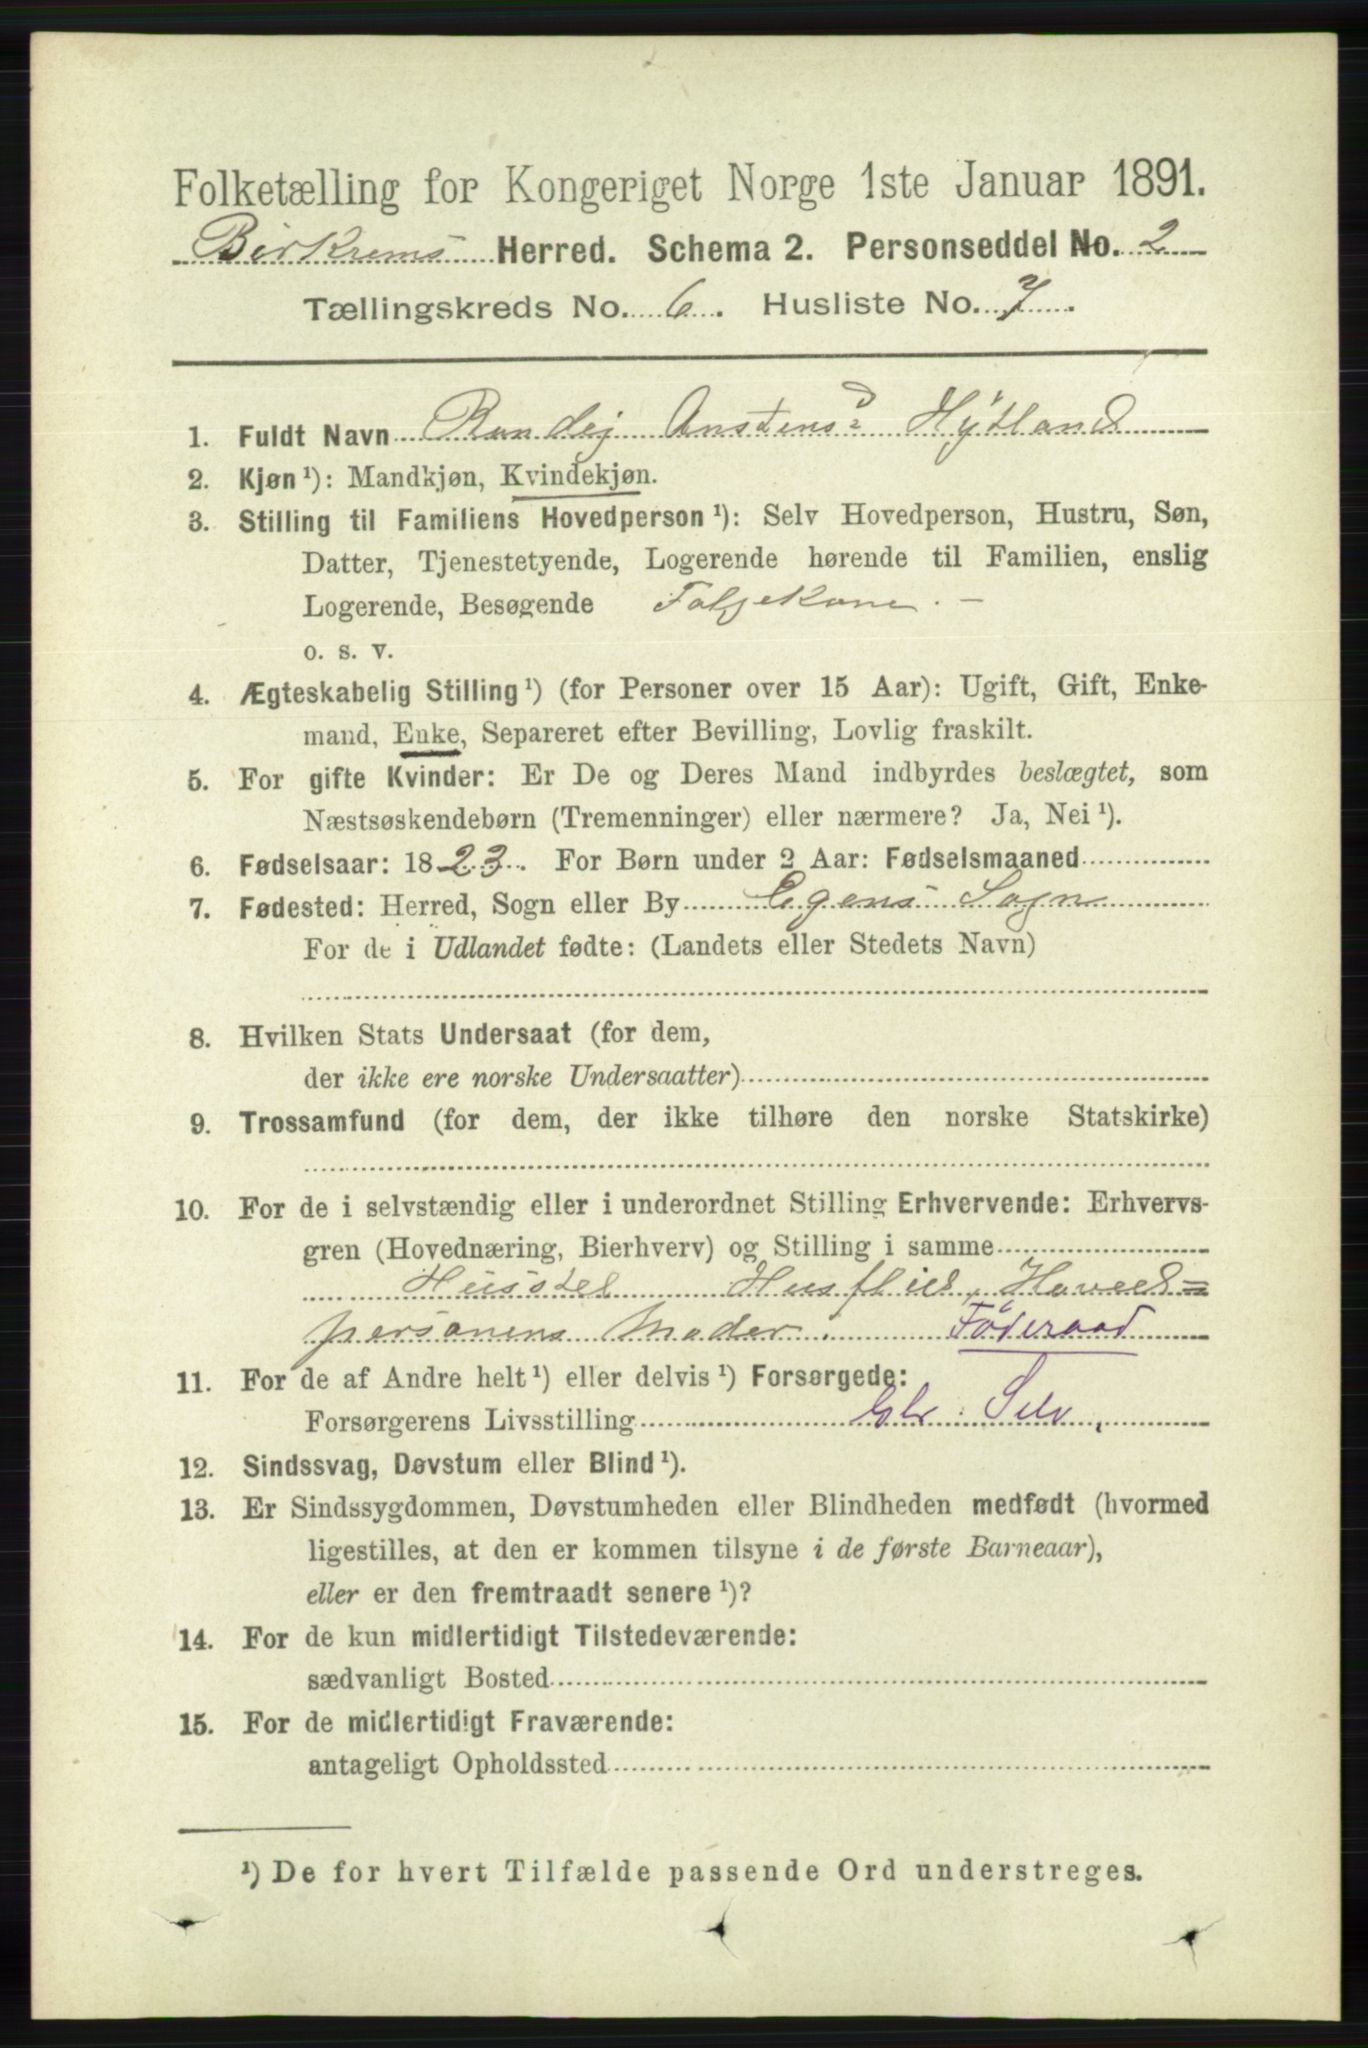 Folketælling for Kongeriget Norge 1ste Januar 1891.
Birkrems Herred. Schema 2. Personseddel No. 2
Tællingskreds No. 6. Husliste No. 7.
1. Fuldt Navn Randej Anstensd Hytland
2. Kjøn¹): Mandkjøn, Kvindekjøn.
3. Stilling til Familiens Hovedperson¹): Selv Hovedperson, Hustru, Søn,
Datter, Tjenestetyende, Logerende hørende til Familien, enslig
Logerende, Besøgende Folgekone. —
o. s. v.
4. Ægteskabelig Stilling¹) (for Personer over 15 Aar): Ugift, Gift, Enke-
mand, Enke, Separeret efter Bevilling, Lovlig fraskilt.
5. For gifte Kvinder: Er De og Deres Mand indbyrdes beslægtet, som
Næstsøskendebørn (Tremenninger) eller nærmere? Ja, Nei¹).
6. Fødselsaar: 1823. For Børn under 2 Aar: Fødselsmaaned
7. Fødested: Herred, Sogn eller By Egens Sogn
For de i Udlandet fødte: (Landets eller Stedets Navn)
8. Hvilken Stats Undersaat (for dem,
der ikke ere norske Undersaatter)
9. Trossamfund (for dem, der ikke tilhøre den norske Statskirke)
10. For de i selvstændig eller i underordnet Stilling Erhvervende: Erhvervs-
gren (Hovednæring, Bierhverv) og Stilling i samme
Husstel Husflid, Hoved=
personens Moder. Föderaad
11. For de af Andre helt¹) eller delvis¹) Forsørgede:
Forsørgerens Livsstilling Selv.
12. Sindssvag, Døvstum eller Blind¹).
13. Er Sindssygdommen, Døvstumheden eller Blindheden medfødt (hvormed
ligestilles, at den er kommen tilsyne i de første Barneaar),
eller er den fremtraadt senere¹)?
14. For de kun midlertidigt Tilstedeværende:
sædvanligt Bosted
15. For de midlertidigt Fraværende:
antageligt Opholdssted
¹) De for hvert Tilfælde passende Ord understreges.